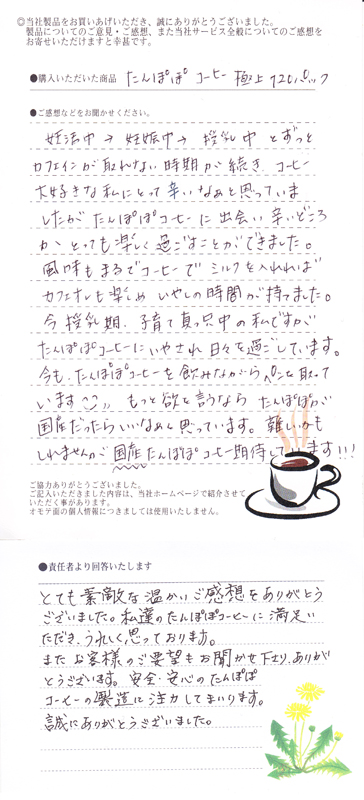 ◎当社製品をお買いあげいただき、誠にありがとうございました。
製品についてのご意見・ご感想、また当社サービス全般についてのご感想を
お寄せいただけますと幸甚です。
●購入いただいた商品 たんぽぽコーヒー 極上 72Cパック
●ご感想などをお聞かせください。
妊活中→妊娠中→授乳中とずっと
カフェインが取れない時期が続き コーヒー
大好きな私にとって辛いなぁと思っていま
したが たんぽぽコーヒーに出会い 辛いどころ
か とっても楽しく過ごすことができました。
風味もまるでコーヒーで ミルクを入れれば
カフェオレも楽しめ いやしの時間が持てました。
今 授乳期、子育て真っ只中の私ですが
たんぽぽコーヒーにいやされ 日々を過ごしています。
今も、たんぽぽコーヒーを飲みながらペンを取って
います もっと欲を言うなら たんぽぽが
国産だったらいいなぁと思っています。難しいかも
しれませんが 国産たんぽぽコーヒー期待しています!!!
ご協力ありがとうございました。
ご記入いただきました内容は、当社ホームページで紹介させて
いただく事があります。
オモテ面の個人情報につきましては使用いたしません。
●責任者より回答いたします
とても素敵な温かいご感想をありがとう
ございました。私達のたんぽぽコーヒーに満足い
ただき、うれしく思っております。
また お客様のご要望もお聞かせ下さり、ありが
とうございます。安全・安心のたんぽぽ
コーヒーの製造に注力してまいります。
誠にありがとうございました。